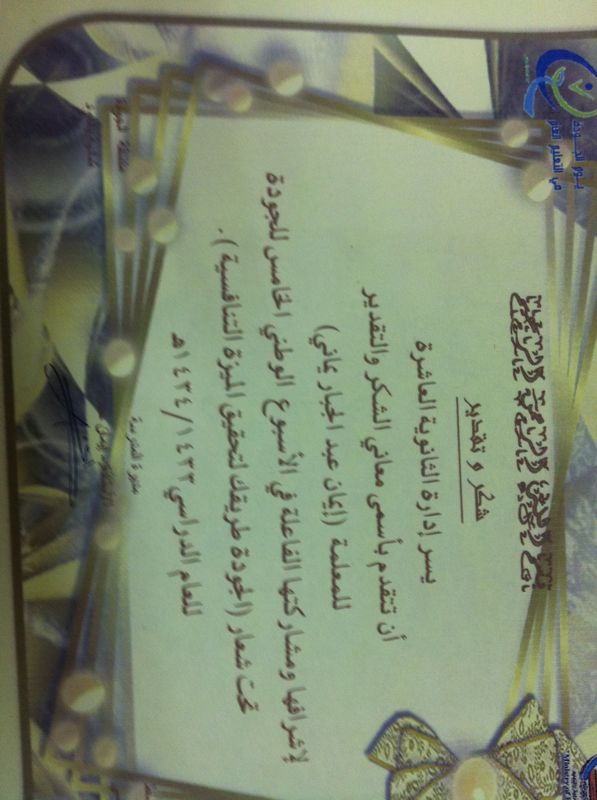 يوم الجودة
في التعليم العام
Ministry of
شكر و تقدير
يسر إدارة الثانوية العاشرة
أن تتقدم بأسمى معاني الشكر والتقدير
للمعلمة (إيمان عبد الجبار يماني)
لإشرافها ومشاركتها الفاعلة في الأسبوع الوطني الخامس للجودة
تحت شعار (الجودة طريقك لتحقيق الميزة التنافسية).
للعام الدراسي ١٤٣٣/١٤٣٤هـ
مديرة المدرسة